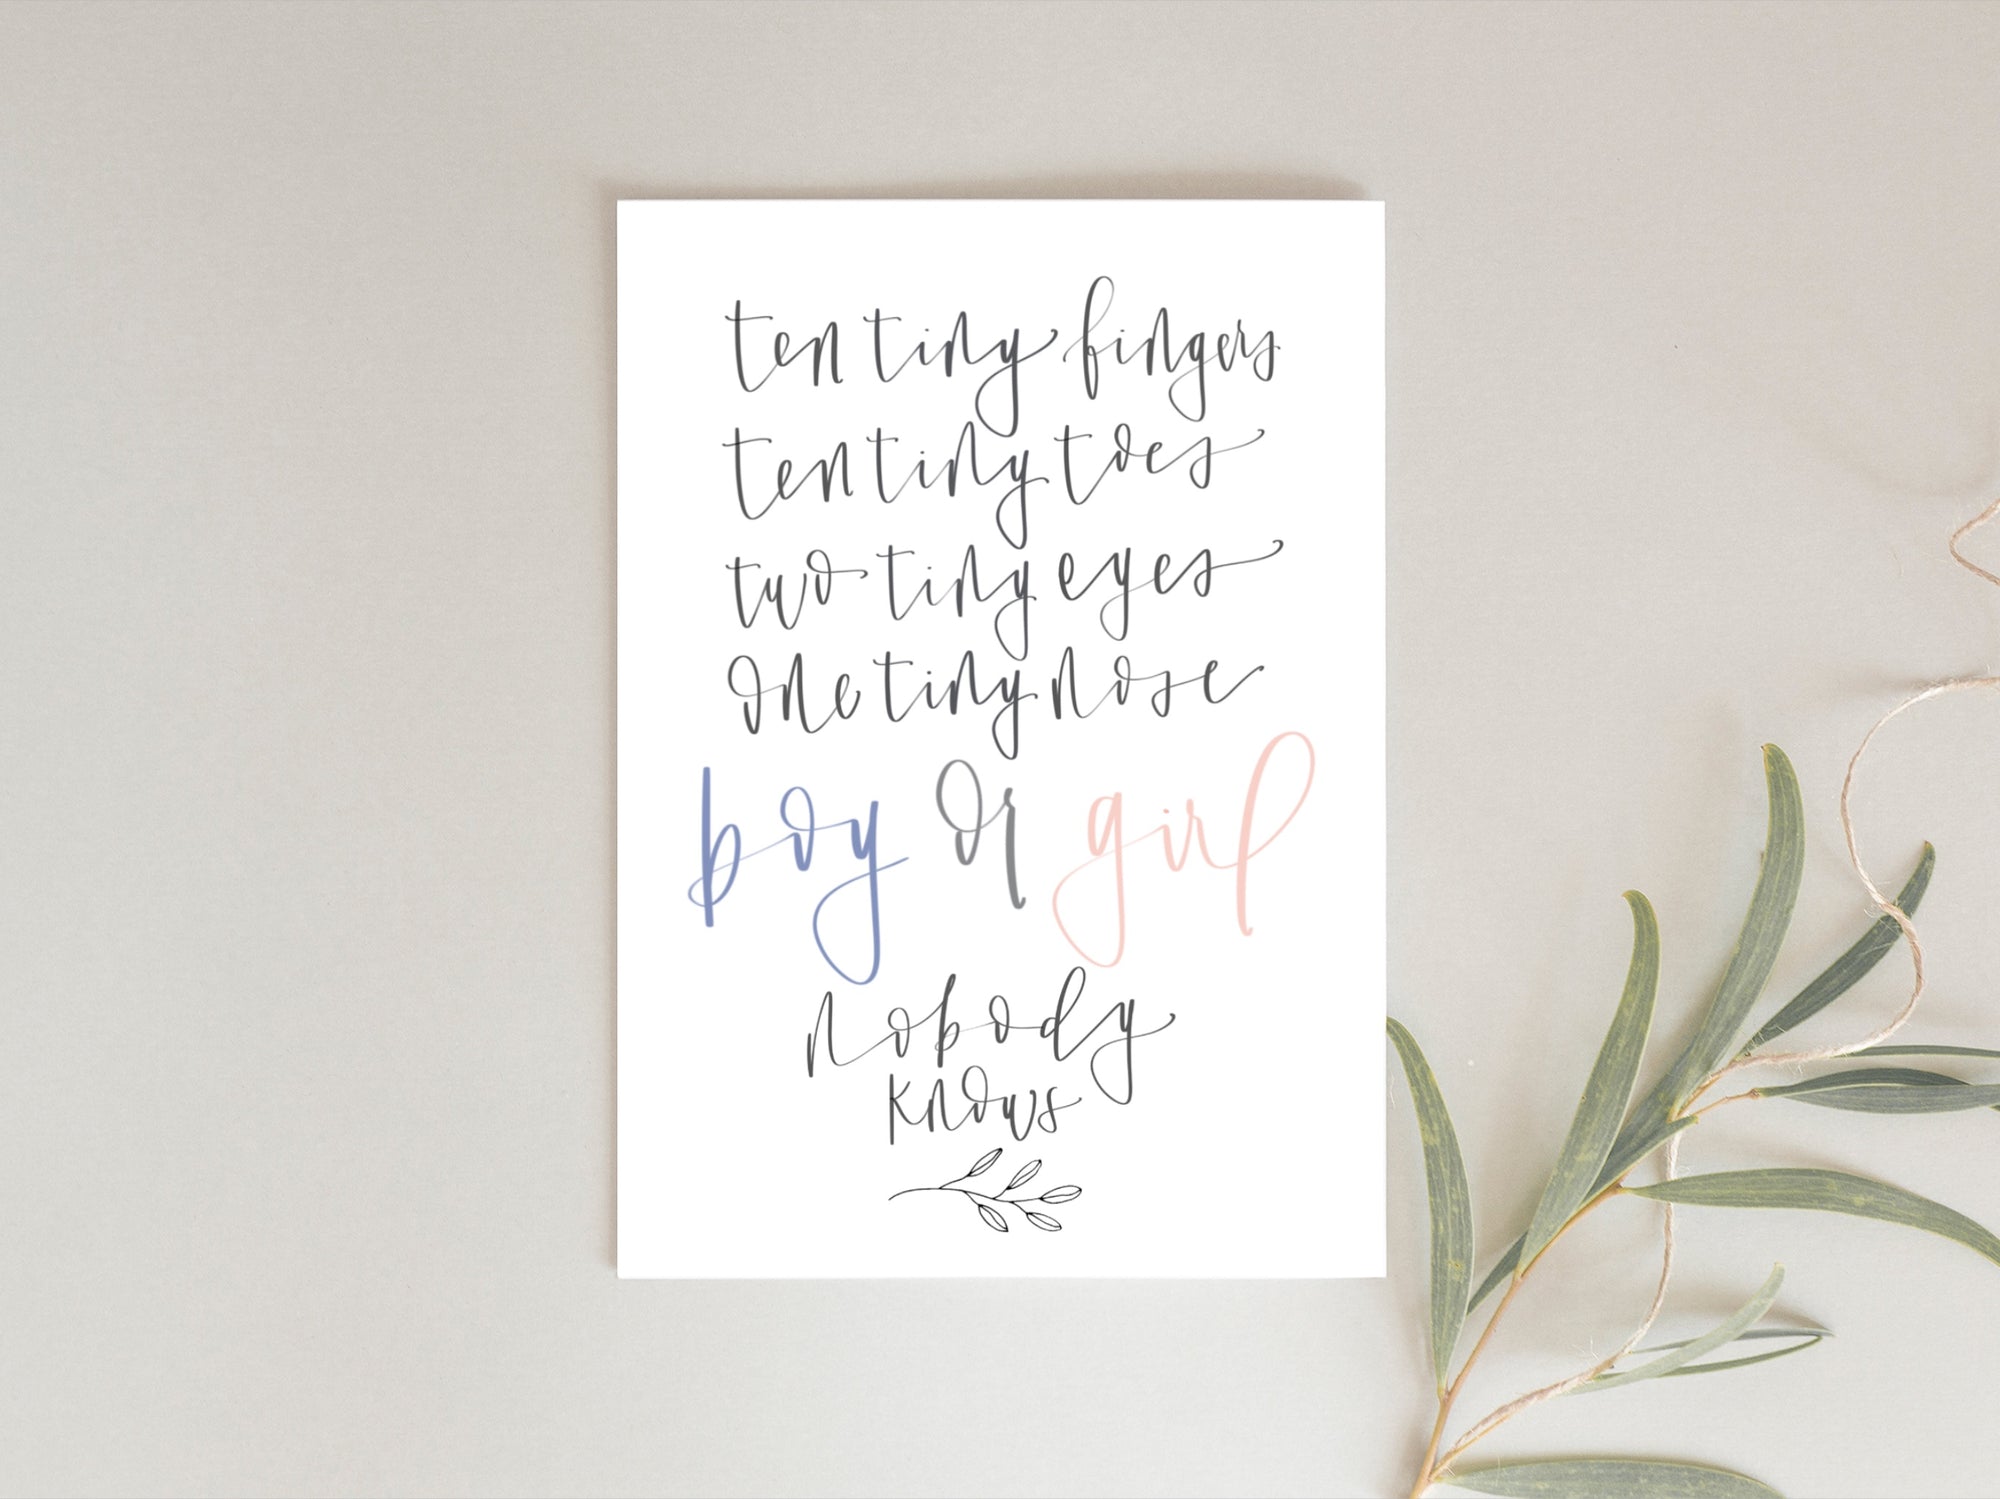 ten tiny fingers
ten tiny toes
two tiny eyes
one tiny nose
boy or girl
nobody
knows